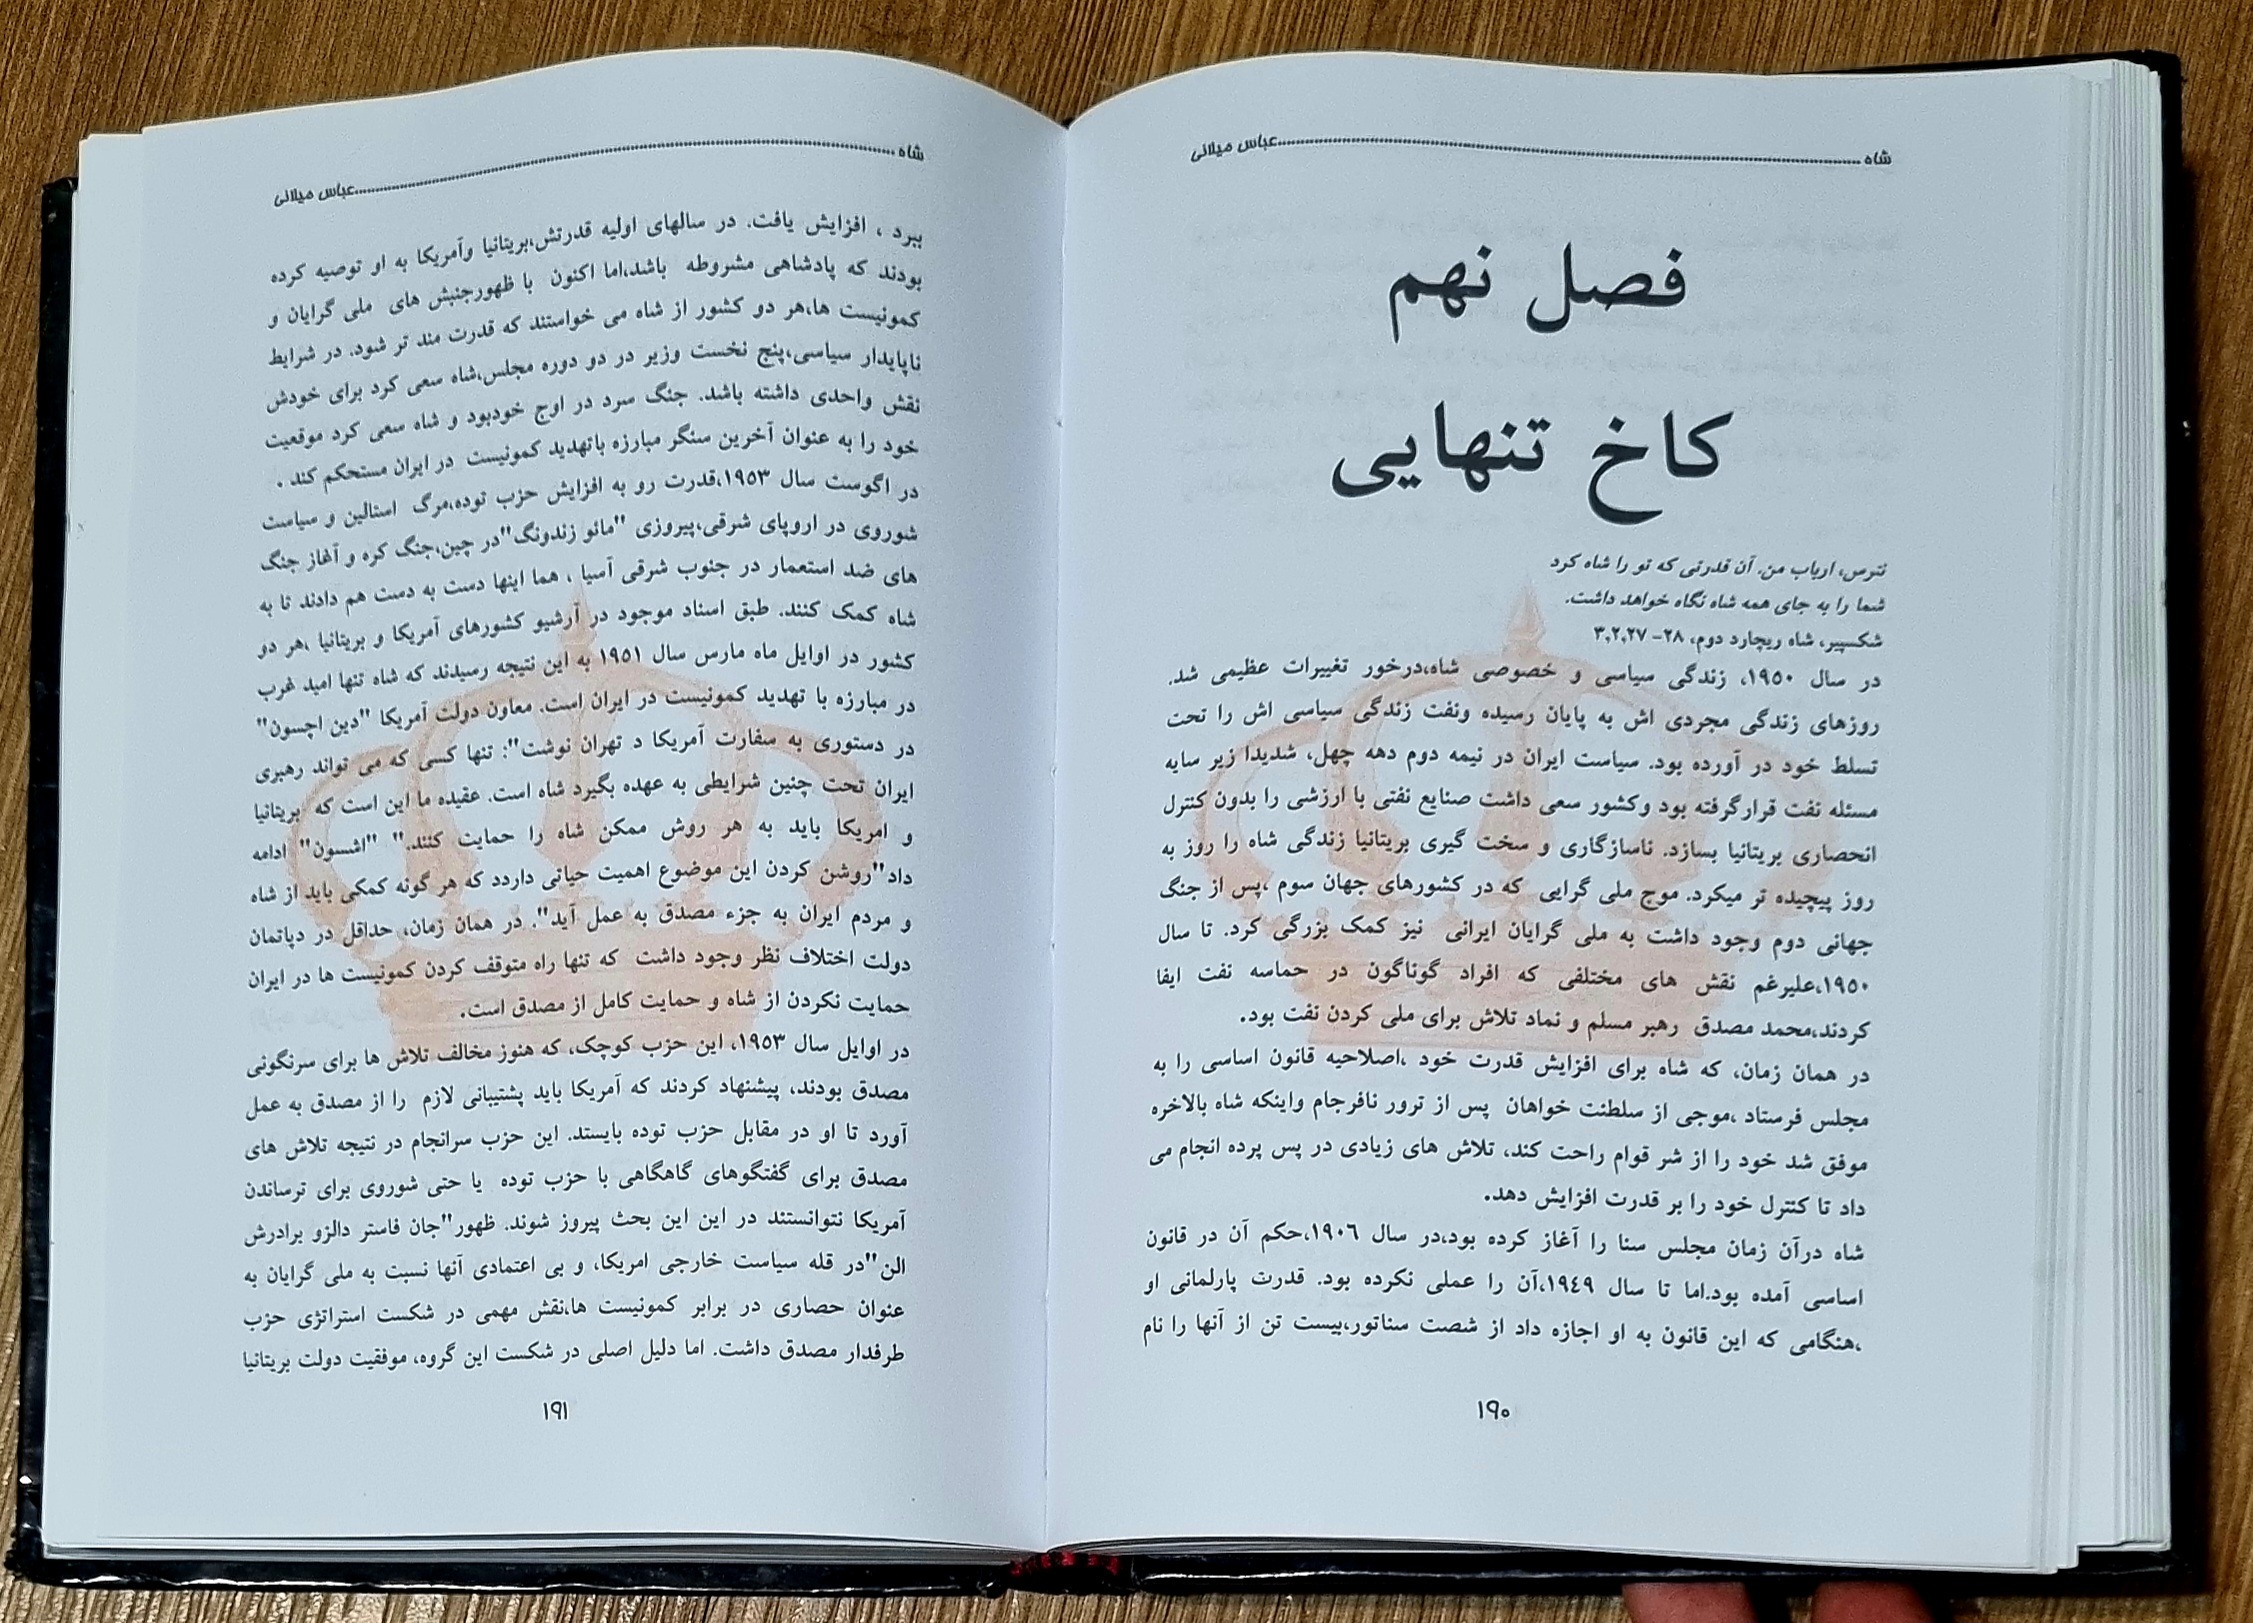 شاه ................عباس میلانی
فصل نهم
کاخ تنهایی
نترس، ارباب من. آن قدرتی که تو را شاه کرد
شما را به جای همه شاه نگاه خواهد داشت.
شکسپیر، شاه ریچارد دوم، ۲۸- ۳,۲,۲۷
در سال ۱۹۵۰، زندگی سیاسی و خصوصی شاه،درخور تغییرات عظیمی شد.
روزهای زندگی مجردی اش به پایان رسیده ونفت زندگی سیاسی اش را تحت
تسلط خود در آورده بود. سیاست ایران در نیمه دوم دهه چهل، شدیدا زیر سایه
مسئله نفت قرارگرفته بود وکشور سعی داشت صنایع نفتی با ارزشی را بدون کنترل
انحصاری بریتانیا بسازد. ناسازگاری و سخت گیری بریتانیا زندگی شاه را روز به
روز پیچیده تر میکرد. موج ملی گرایی که در کشورهای جهان سوم ،پس از جنگ
جهانی دوم وجود داشت به ملی گرایان ایرانی نیز کمک بزرگی کرد. تا سال
۱۹۵۰،علیرغم نقش های مختلفی که افراد گوناگون در حماسه نفت ایفا
کردند،محمد مصدق رهبر مسلم و نماد تلاش برای ملی کردن نفت بود.
در همان زمان، که شاه برای افزایش قدرت خود ،اصلاحیه قانون اساسی را به
مجلس فرستاد ،موجی از سلطنت خواهان پس از ترور نافرجام واینکه شاه بالاخره
موفق شد خود را از شر قوام راحت کند، تلاش های زیادی در پس پرده انجام می
داد تا کنترل خود را بر قدرت افزایش دهد.
شاه درآن زمان مجلس سنا را آغاز کرده بود،در سال ۱۹۰۶،حکم آن در قانون
اساسی آمده بود.اما تا سال ۱۹٤۹،آن را عملی نکرده بود. قدرت پارلمانی او
،هنگامی که این قانون به او اجازه داد از شصت سناتور،بیست تن از آنها را نام
۱۹۰
شاه ................عباس میلانی
ببرد ، افزایش یافت. در سالهای اولیه قدرتش،بریتانیا وآمریکا به او توصیه کرده
بودند که پادشاهی مشروطه باشد،اما اکنون با ظهورجنبش های ملی گرایان و
کمونیست ها،هر دو کشور از شاه می خواستند که قدرت مند تر شود. در شرایط
ناپایدار سیاسی،پنج نخست وزیر در دو دوره مجلس،شاه سعی کرد برای خودش
نقش واحدی داشته باشد. جنگ سرد در اوج خودبود و شاه سعی کرد موقعیت
خود را به عنوان آخرین سنگر مبارزه باتهدید کمونیست در ایران مستحکم کند .
در اگوست سال ۱۹۵۳،قدرت رو به افزایش حزب توده،مرگ استالین و سیاست
شوروی در اروپای شرقی،پیروزی "مائو زندونگ"در چین،جنگ کره و آغاز جنگ
های ضد استعمار در جنوب شرقی آسیا ، هما اینها دست به دست هم دادند تا به
شاه کمک کنند. طبق اسناد موجود در آرشیو کشورهای آمریکا و بریتانیا ،هر دو
کشور در اوایل ماه مارس سال ۱۹۵۱ به این نتیجه رسیدند که شاه تنها امید غرب
در مبارزه با تهدید کمونیست در ایران است. معاون دولت آمریکا "دین اچسون"
در دستوری به سفارت آمریکا د تهران نوشت": تنها کسی که می تواند رهبری
ایران تحت چنین شرایطی به عهده بگیرد شاه است. عقیده ما این است که بریتانیا
و امریکا باید به هر روش ممکن شاه را حمایت کنند." "اشسون" ادامه
داد"روشن کردن این موضوع اهمیت حیاتی داردد که هر گونه کمکی باید از شاه
و مردم ایران به جزء مصدق به عمل آید". در همان زمان، حداقل در دپاتمان
دولت اختلاف نظر وجود داشت که تنها راه متوقف کردن کمونیست ها در ایران
حمایت نکردن از شاه و حمایت کامل از مصدق است.
در اوایل سال ۱۹۵۳، این حزب کوچک، که هنوز مخالف تلاش ها برای سرنگونی
مصدق بودند، پیشنهاد کردند که آمریکا باید پشتیبانی لازم را از مصدق به عمل
آورد تا او در مقابل حزب توده بایستد. این حزب سرانجام در نتیجه تلاش های
مصدق برای گفتگوهای گاهگاهی با حزب توده یا حتی شوروی برای ترساندن
آمریکا نتوانستند در این این بحث پیروز شوند. ظهور"جان فاستر دالزو برادرش
الن"در قله سیاست خارجی امریکا، و بی اعتمادی آنها نسبت به ملی گرایان به
عنوان حصاری در برابر کمونیست ها،نقش مهمی در شکست استراتژی حزب
طرفدار مصدق داشت. اما دلیل اصلی در شکست این گروه، موفقیت دولت بریتانیا
۱۹۱